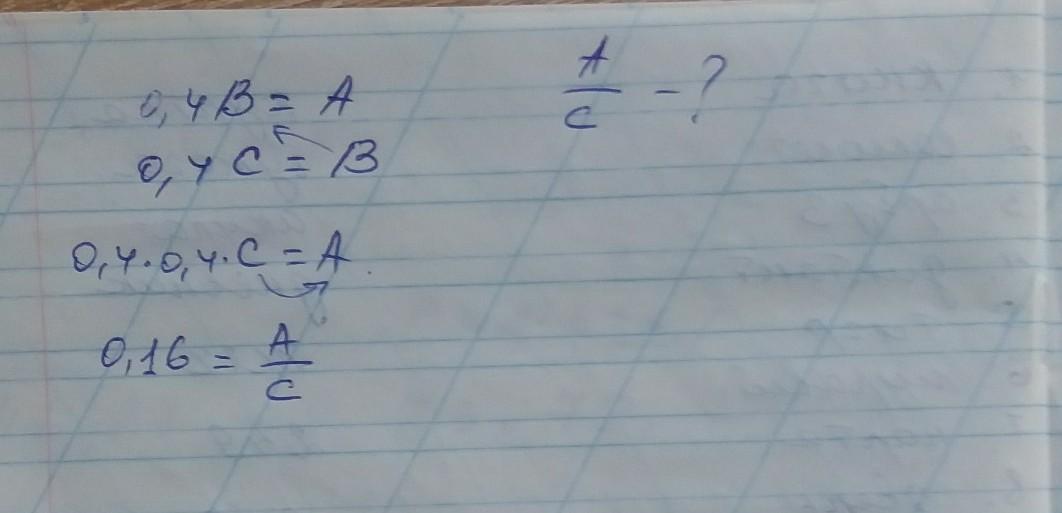 0,4B = A
A/C - ?
0,4C = B
0,4·0,4·C = A
0,16 = A/C